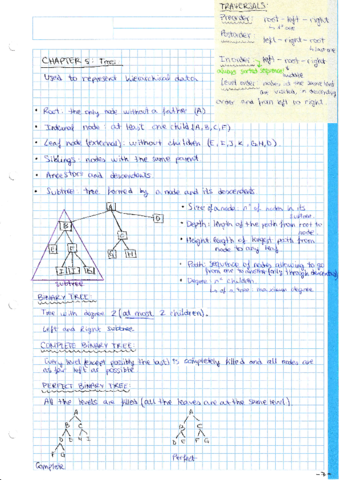 TRAVERSALS:
Preorder: root - left - right
Postorder:
left - right - root
Inorder: left - root - right
always sorted sequence
Level order: nodes at the same level
are visited, in descending
order and from left to right
CHAPTER 5: Trees
Used to represent hierarchical data
• Root: the only node without a father (A)
• Internal node: at least one child (A, B, C, F)
• Leaf node (external): without children (E, I, J, K, G, H, D)
• Siblings: nodes with the same parent
• Ancestors and descendants
• Subtree: tree formed by a node and its descendants
• Size of a node: nº of nodes in its
subtree
• Depth: length of the path from root to
node
• Height: length of longest path from
node to any leaf
• Path: sequence of nodes allowing to go
from one to another (only through descendants)
• Degree: nº children
of a tree: maximum degree
A
B
D
E
G
H
subtree
BINARY TREE:
Tree with degree 2 (at most 2 children).
Left and Right subtree
COMPLETE BINARY TREE
Every level (except possibly the last) is completely filled and all nodes are
as far left as possible
PERFECT BINARY TREE:
All the levels are filled (all the leaves are at the same level)
A
B C
F G
Complete
A
B C
D E F G
Perfect
-7-